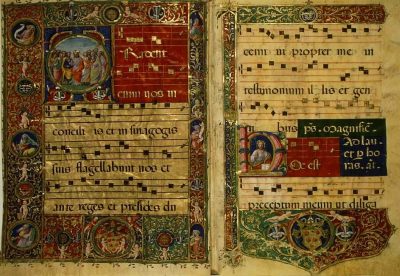 radent
enim vos in
concili is et in sinagogis
suis flagellabunt vos et
ante reges et presides du
cemi ni propter me in
testimonium il lis et gen
bus ps. Magnific
Ad lau
et p horas
oc est
preceptum meum ut diliga